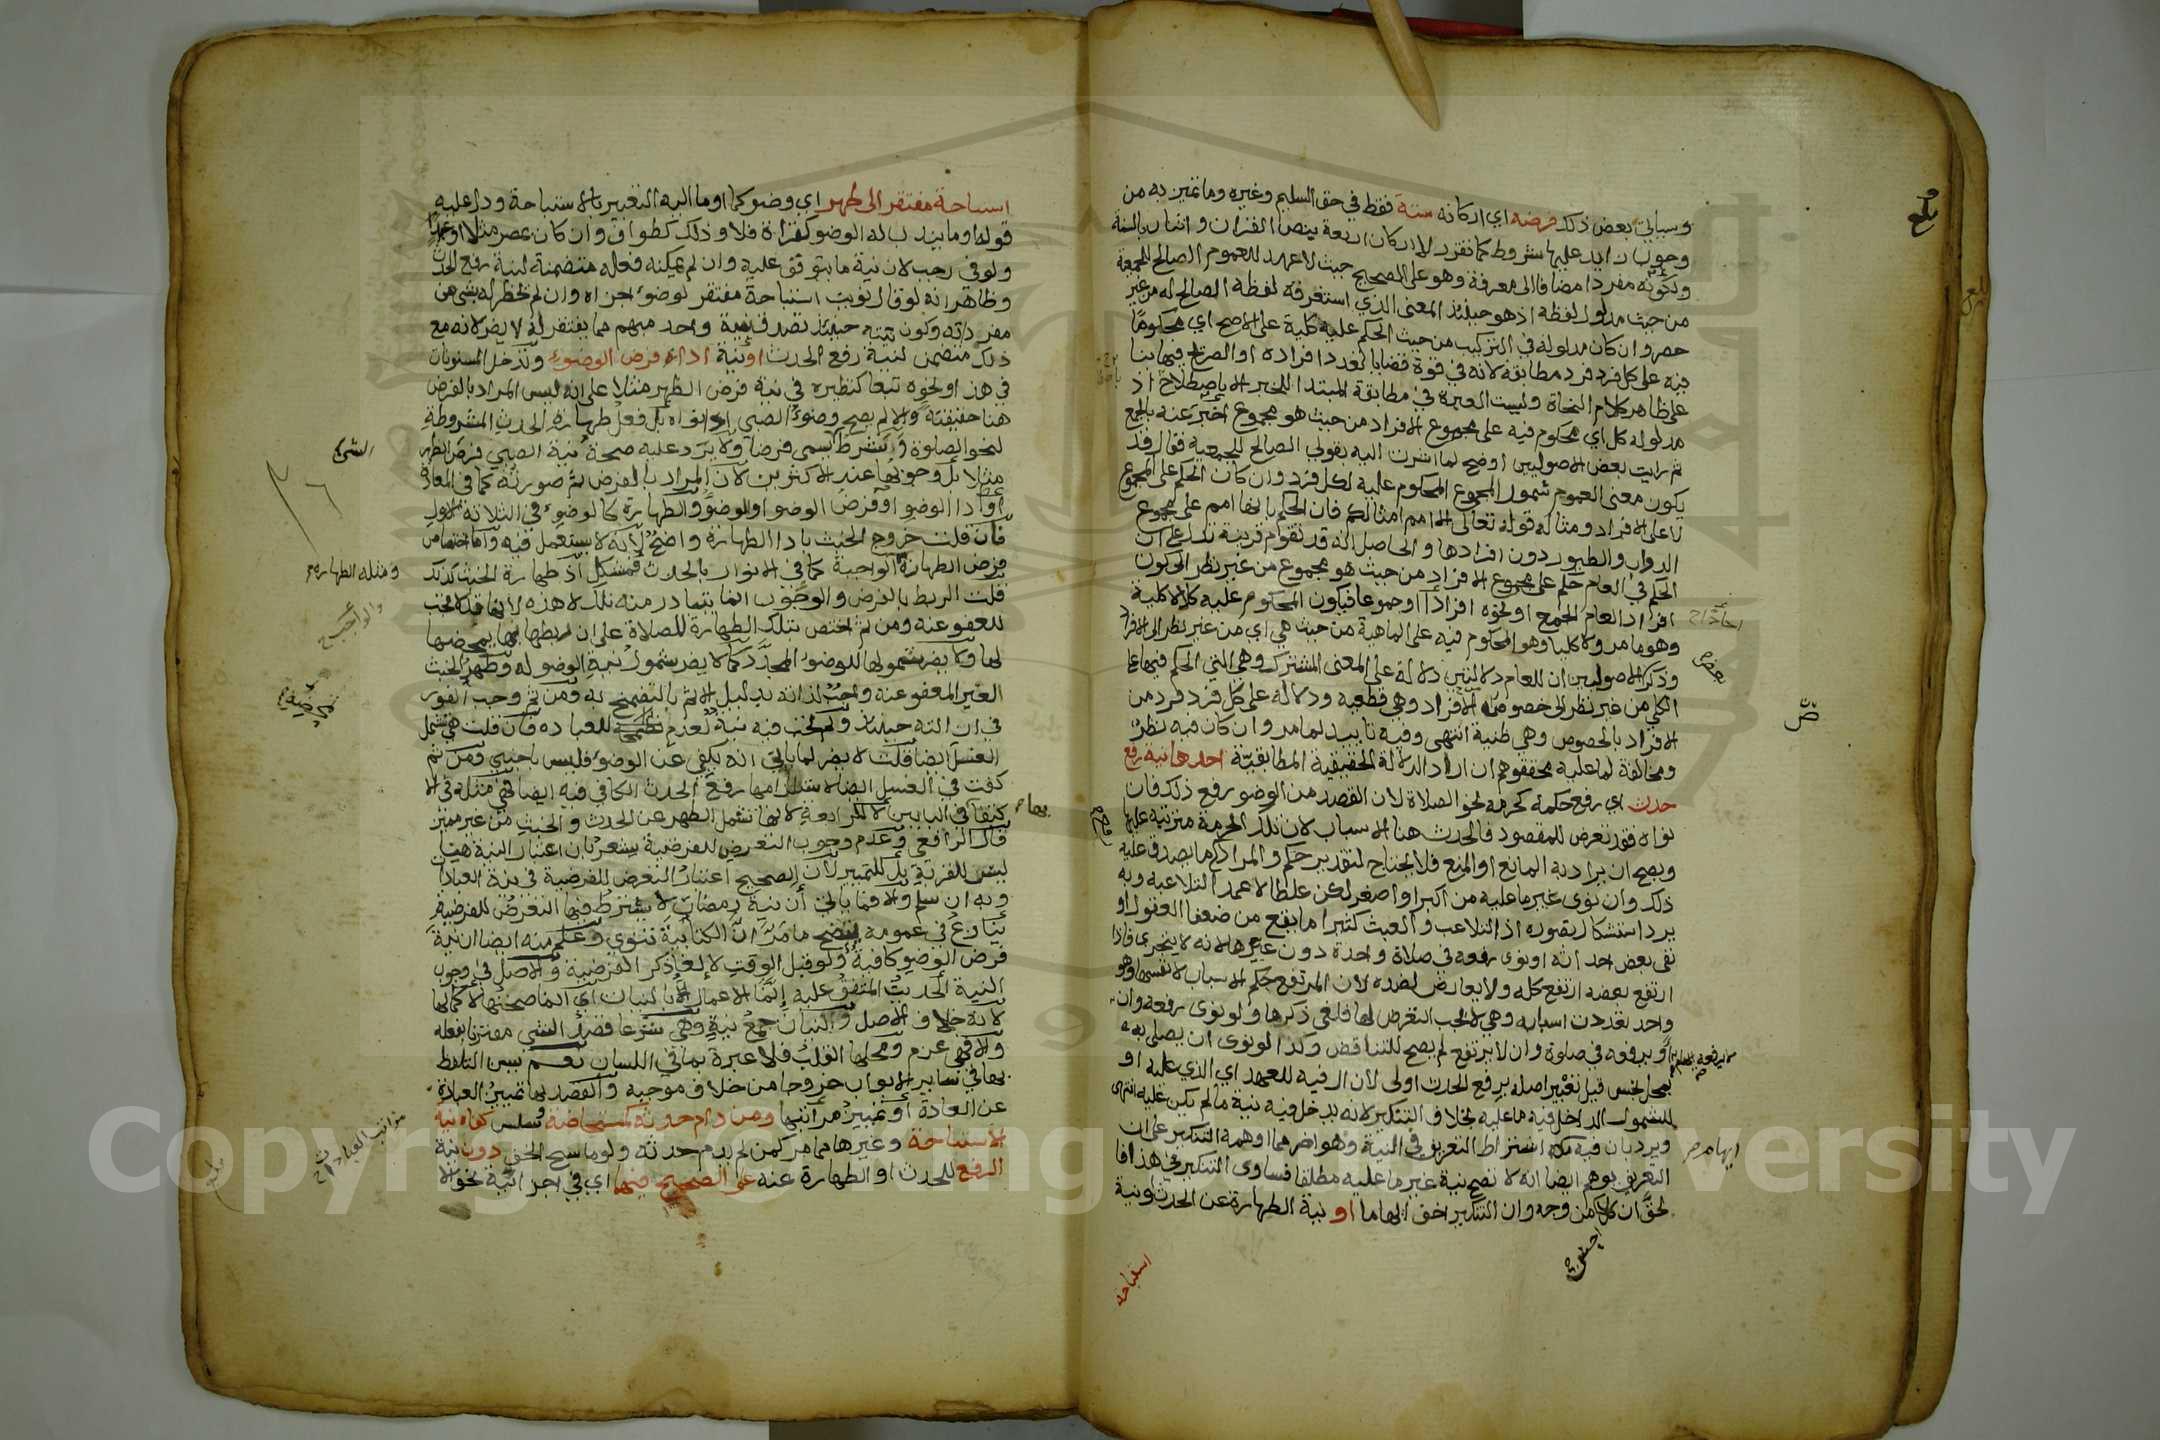 وسياتي بعض ذلك فرضه اي اركانه ستة فقط في حق السليم وغيره وما تميز به من
وجوب زايد عليها شروط كما تقرر لا اركان اربعة بنص القران واثنان بالسنة
ولكونه مفردا مضافا الى معرفة وهو على الصحيح حيث لا عهد للعموم الصالح للجمعية
من حيث مدلول لفظه اذ هو حينئذ المعنى الذي استغرقه لفظه الصالح له من غير
حصر وان كان مدلوله في التركيب من حيث الحكم عليه كلية على الاصح اي محكوما
فيه على كل فرد فرد مطابقة لانه في قوة قضايا بعدد افراده او
على ظاهر كلام النحاة وليست العبرة في مطابقة المبتدا للخبر الا باصطلاح اذ
مدلوله كل اي محكوم فيه على مجموع الافراد من حيث هو مجموع اخبر عنه بالجمع
ثم رايت بعض الاصوليين اوضح لما اشرت اليه بقولي الصالح للجمعية فقال قد
يكون معنى العموم شمول المجموع المحكوم عليه لكل فرد وان كان الحكم على المجموع
لا على الافراد ومثاله قوله تعالى الا امم امثالكم فان الحكم بانها امم على مجموع
الدواب والطيور دون افرادها والحاصل انه قد تقوم قرينة تدل على ان
الحكم في العام حكم على مجموع الافراد من حيث هو مجموع من غير نظر الى كون
افراد العام الجمع او نحوه افرادا او جموعا فيكون المحكوم عليه كلا لا كلية
وهو ما مر ولا كليا وهو المحكوم فيه على الماهية من حيث هي اي من غير نظر الى الافراد
وذكر الاصوليين ان للعام دلالتين دلالة على المعنى المشترك وهي التي الحكم فيها على
الكلي من غير نظر الى خصوص الافراد وهي قطعية ودلالة على كل فرد فرد من
الافراد بالخصوص وهي ظنية انتهى وفيه تاييد لما مر وان كان فيه نظر
ومخالفة لما عليه محققوهم ان اراد الدلالة الحقيقية المطابقية احدها نية رفع
حدث اي رفع حكمه كحرمة نحو الصلاة لان القصد من الوضو رفع ذلك فان
نواه فقد تعرض للمقصود فالحدث هنا الاسباب لان تلك الحرمة مترتبة عليها
ويصح ان يراد به المانع او المنع فلا يحتاج لتقدير حكم والمراد ما يصدق عليه
ذلك وان نوى غير ما عليه من اكبر او اصغر لكن غلطا لا عمدا لتلاعبه وبه
يرد استشكال تصوره اذ التلاعب والعبث كثيرا ما يقع من ضعفا العقول او
نفى بعض احداثه او نوى رفعه في صلاة واحدة دون غيرها لانه لا يتجزى فاذا
ارتفع بعضه ارتفع كله ولا يعارض بضده لان المرتفع حكم الاسباب لا نفسها وهو
واحد تعددت اسبابه وهي لا يجب التعرض لها فلغى ذكرها ولو نوى رفعه وان
او يرفعه في صلاة وان لا يرتفع لم يصح للتناقض وكذا لو نوى ان يصلي به
بمحل نجس قيل تعبير اصله برفع الحدث اولى لان ال فيه للعهد اي الذي عليه او
للشمول الداخل فيه ما عليه بخلاف التنكير لانه يدخل فيه نية ما لم يكن عليه انتهى
ويرد بان فيه اشتراط التعريف في النية وهو اضر مما اوهمه التنكير على ان
التعريف يوهم ايضا انه لا تصح نية غير ما عليه مطلقا فساوى التنكير في هذا فا
لحق ان كلا من وجه وان التنكير اخف ايهاما او نية الطهارة عن الحدث او نية
استباحة
بلغ
ايهام صح
استباحة مفتقر الى طهر اي وضو كما اوما اليه التعبير بالاستباحة ودل عليه
قوله او ما يندب له الوضو كقراة فلا وذلك كطواف وان كان بمصر مثلا او عيد
ولو في رجب لان نية ما يتوقف عليه وان لم يمكنه فعله متضمنة لنية رفع الحدث
وظاهر انه لو قال نويت استباحة مفتقر لوضوء اجزاه وان لم يخطر له شي من
مفرداته وكون نيته حينئذ تصدق بنية واحد مبهم مما يفتقر له لا يضر لانه مع
ذلك متضمن لنية رفع الحدث او نية اداء فرض الوضوء وتدخل المسنونات
في هذا ونحوه تبعا كنظيره في نية فرض الظهر مثلا على انه ليس المراد بالفرض
هنا حقيقته والا لم يصح وضوء الصبي اذا نواه بل فعل طهارة الحدث المشروطة
لنحو الصلوة وشرط يسمى فرضا ولا يرد عليه صحة نية الصبي فرض الظهر
مثلا بل وجوبها عند الاكثرين لان المراد بالفرض ثم صورته كما في المعادة
او اداء الوضو او فرض الوضو او الوضو والطهارة كالوضوء في الثلاثة الاول
فان قلت خروج الخبث بادا الطهارة واضح لانه لا يستعمل فيه واما
فرض الطهارة الواجبة كما في الانوار بالحدث فمشكل اذ طهارة الخبث كذلك
قلت الربط بالفرض والوجوب انما يتبادر منه تلك لا هذه لانها قد لا تجب
للعفو عنه ومن ثم اختص بتلك الطهارة للصلاة على ان ربطها بها يمحضها
لها ولا يضر شمولها للوضوء المجدد كما لا يضر شمول نية الوضو له وطهر الخبث
الغير المعفو عنه واجب لذاته بدليل الاثم بالتضمخ به ومن ثم وجب الفور
في ازالته حينئذ ولم تجب فيه نية لعدم للعبادة فان قلت هي تشمل
الغسل ايضا قلت لا يضر لما ياتي انه يكفي عن الوضوء فليس باجنبي ومن ثم
كفت في الغسل ايضا لاستلزامها رفع الحدث الكافي فيه ايضا فهي مثله في الا
كتفا في البابين لا كرابعة لانها تشمل الطهر عن الحدث والخبث من غير مميز
قال الرافعي وعدم وجوب التعرض للفرضية يشعر بان اعتبار النية هنا
ليس للقربة بل للتمييز لان الصحيح اعتبار التعرض للفرضية في نية العبادات
وبه ان سلم والا فما ياتي ان نية رمضان لا يشترط فيها التعرض للفرضية
ينازع في عمومه يتضح ما مر ان الكتابية تنوي وعلم منه ايضا ان نية
فرض الوضو كافية ولو قبل الوقت لالغا ذكر الفرضية والاصل في وجوب
النية الحديث المتفق عليه انما الاعمال بالنيات اي انما صحتها لا كمالها
لانه خلاف الاصل والنيات جمع نية وهي شرعا قصد الشي مقترنا بفعله
والا فهي عزم ومحلها القلب فلا عبرة بما في اللسان نعم يسن التلفظ
بها في ساير الابواب خروجا من خلاف موجبه والقصد بها تمييز العبادة
عن العادة او تمييز مراتبها ومن دام حدثه كمستحاضة وسلس كفاه نية
الاستباحة وغيرها مما مر كمن لم يدم حدثه ولو ماسح الخف دون نية
الرفع للحدث او الطهارة عنه على الصحيح فيهما اي في اجزا نية نحو الا
الشيء
ومثله الطهارة
مراتب العبادات